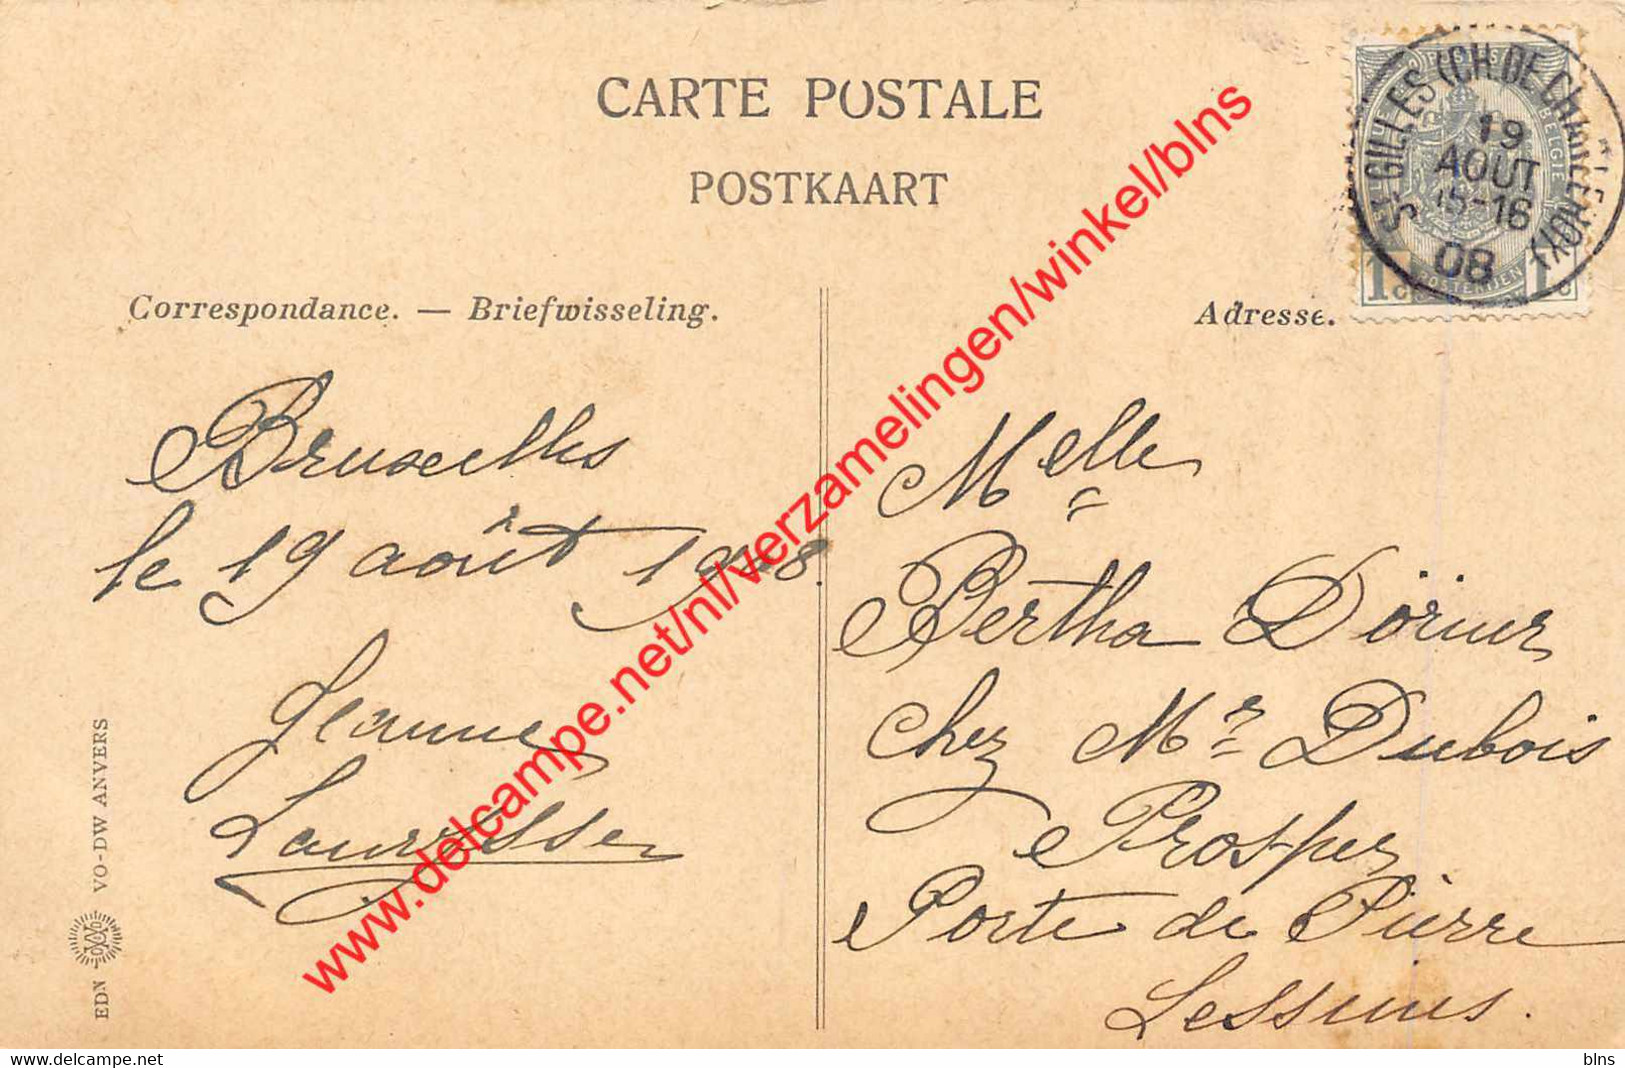 CARTE POSTALE
POSTKAART
ST GILLES (CH. DE CHARLEROY)
19
AOUT
15-16
08
BELGIE
1c
1c
Correspondance. — Briefwisseling.
Adresse.
Bruxelles
le 19 août 1908.
Jeanne
Melle
Bertha
chez Mr Dubois
Prosper
Porte de Pierre
Lessines.
EDN VO-DW ANVERS
www.delcampe.net/nl/verzamelingen/winkel/blns
www.delcampe.net
blns